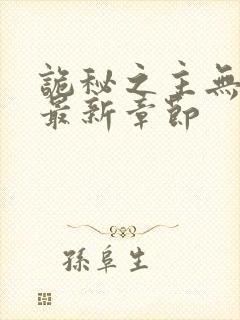 詭秘之主無
最新章節
孫阜生